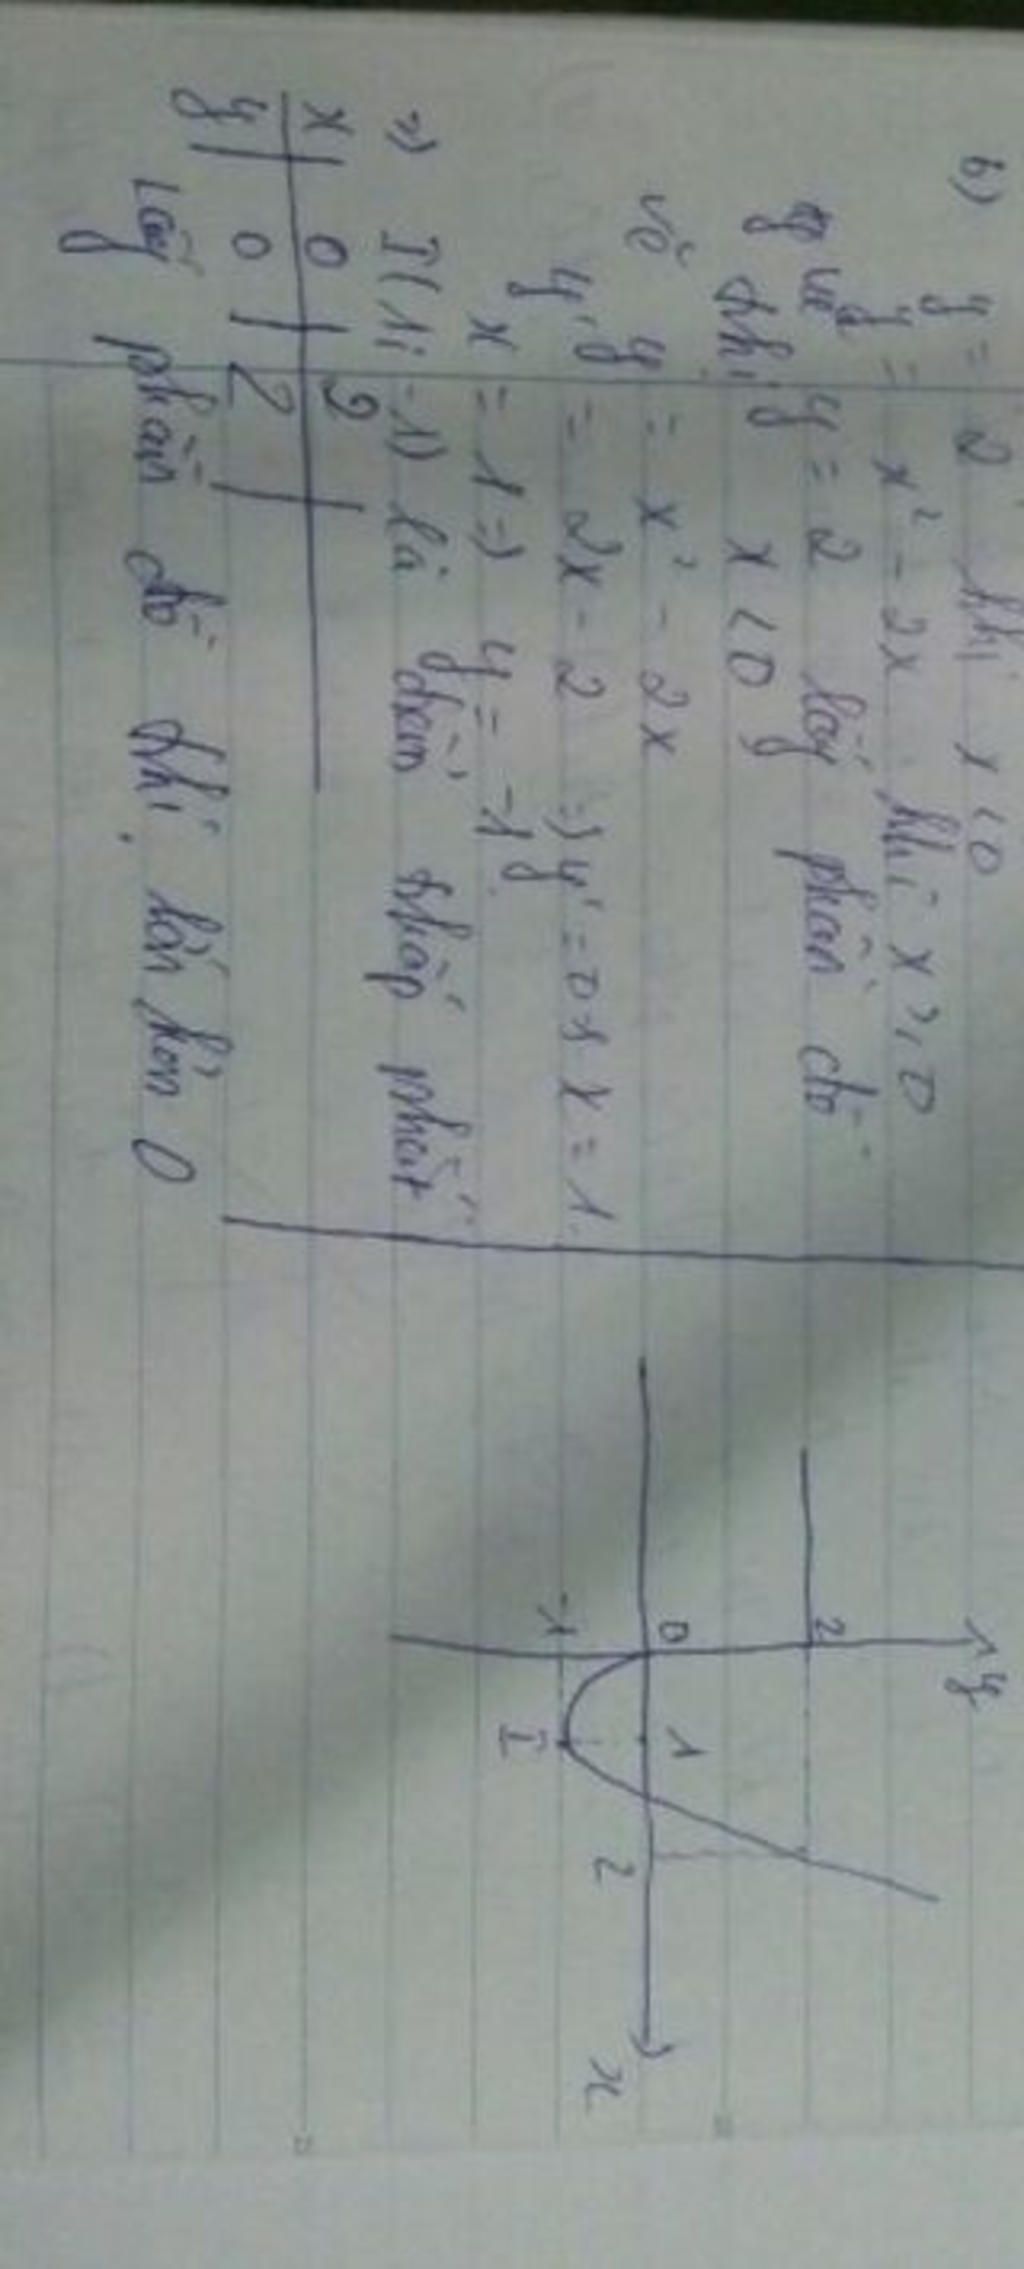 b) y = 2 khi x < 0
y = x² - 2x khi x ≥ 0
vẽ y = 2 lấy phần đồ
thị x < 0
vẽ y = x² - 2x
y' = 2x - 2 => y' = 0 x = 1
x = 1 => y = -1
=> I(1; -1) là điểm thấp nhất
x 0 2
y 0 2
Lấy phần đồ thị lớn hơn 0
y
2
0 1 2 x
-1 I